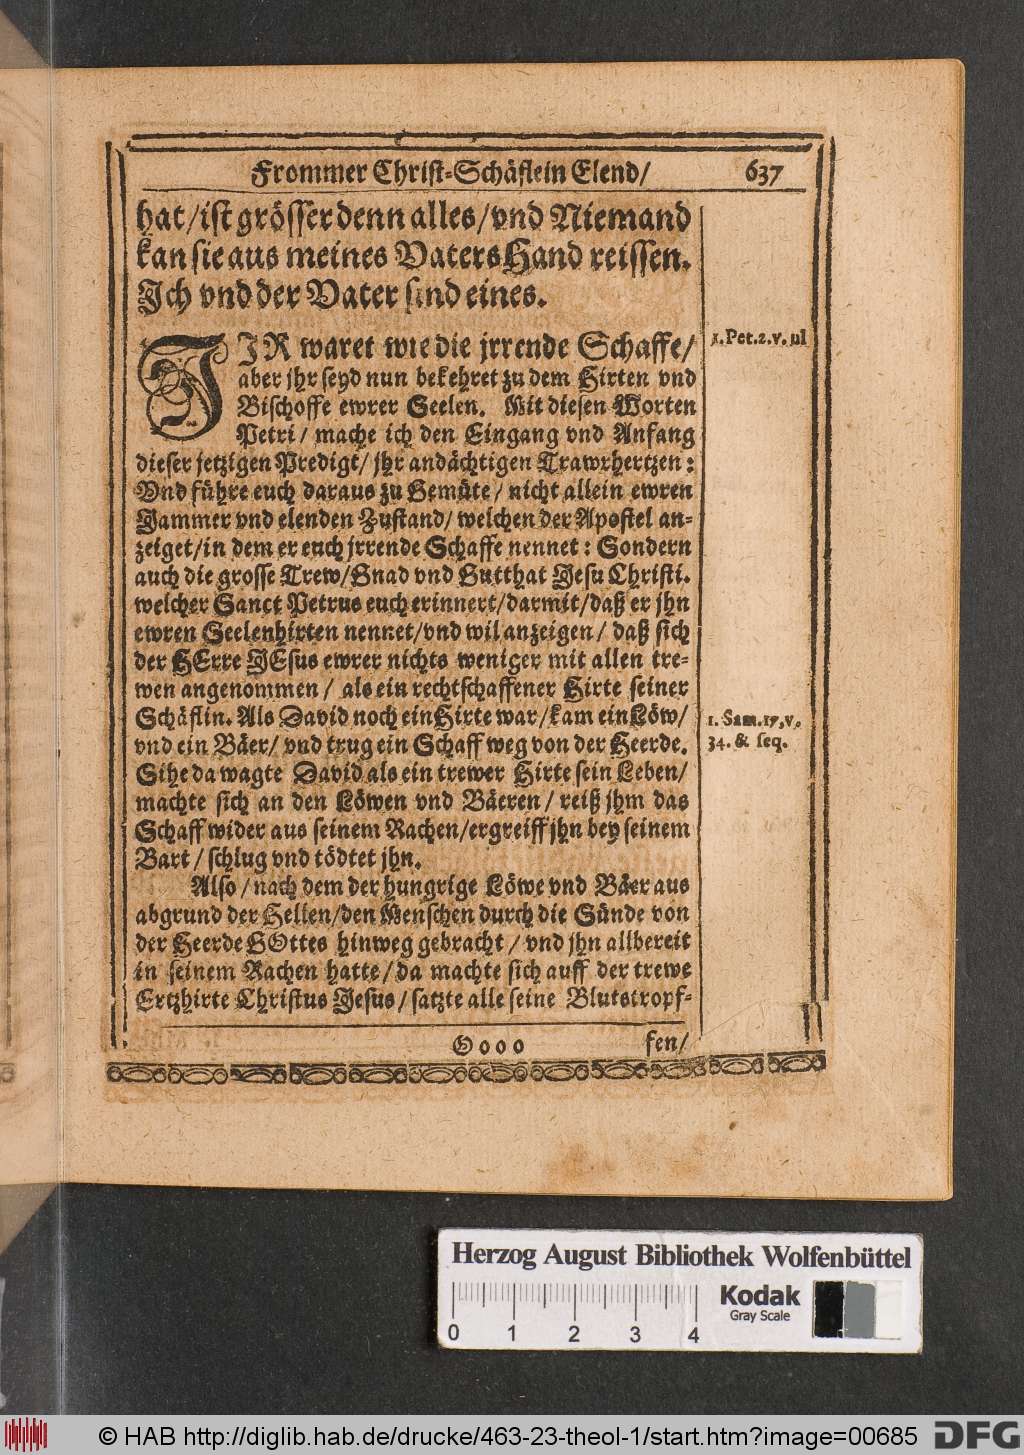 Frommer Christ-Schäflein Elend/ 637
hat/ist grösser denn alles/vnd Niemand
kan sie aus meines Vaters Hand reissen.
Ich vnd der Vater sind eines.
IJR waret wie die jrrende Schaffe/
1.Pet.2.v.ul
aber jhr seyd nun bekehret zu dem Hirten vnd
Bischoffe ewrer Seelen. Mit diesen Worten
Petri/ mache ich den Eingang vnd Anfang
dieser jetzigen Predigt/ jhr andächtigen Trawrhertzen:
Vnd führe euch daraus zu Gemüte/ nicht allein ewren
Jammer vnd elenden Zustand/ welchen der Apostel an-
zeiget/in dem er euch jrrende Schaffe nennet: Sondern
auch die grosse Trew/Gnad vnd Gutthat Jesu Christi.
welcher Sanct Petrus euch erinnert/darmit/daß er jhn
ewren Seelenhirten nennet/vnd wil anzeigen/ daß sich
der HErre JEsus ewrer nichts weniger mit allen tre-
wen angenommen/ als ein rechtschaffener Hirte seiner
Schäflin. Als David noch ein Hirte war/kam ein Löw/
1. Sam.17.v.
vnd ein Bäer/ vnd trug ein Schaff weg von der Heerde.
34. & seq.
Sihe da wagte David als ein trewer Hirte sein Leben/
machte sich an den Löwen vnd Bäeren/ reiß jhm das
Schaff wider aus seinem Rachen/ergreiff jhn bey seinem
Bart/ schlug vnd tödtet jhn.
Also/ nach dem der hungrige Löwe vnd Bäer aus
abgrund der Hellen/den Menschen durch die Sünde von
der Heerde GOttes hinweg gebracht/ vnd jhn allbereit
in seinem Rachen hatte/ da machte sich auff der trewe
Ertzhirte Christus Jesus/ satzte alle seine Blutstropf-
Oooo fen/
Herzog August Bibliothek Wolfenbüttel
Kodak
Gray Scale
0 1 2 3 4
© HAB http://diglib.hab.de/drucke/463-23-theol-1/start.htm?image=00685 DFG